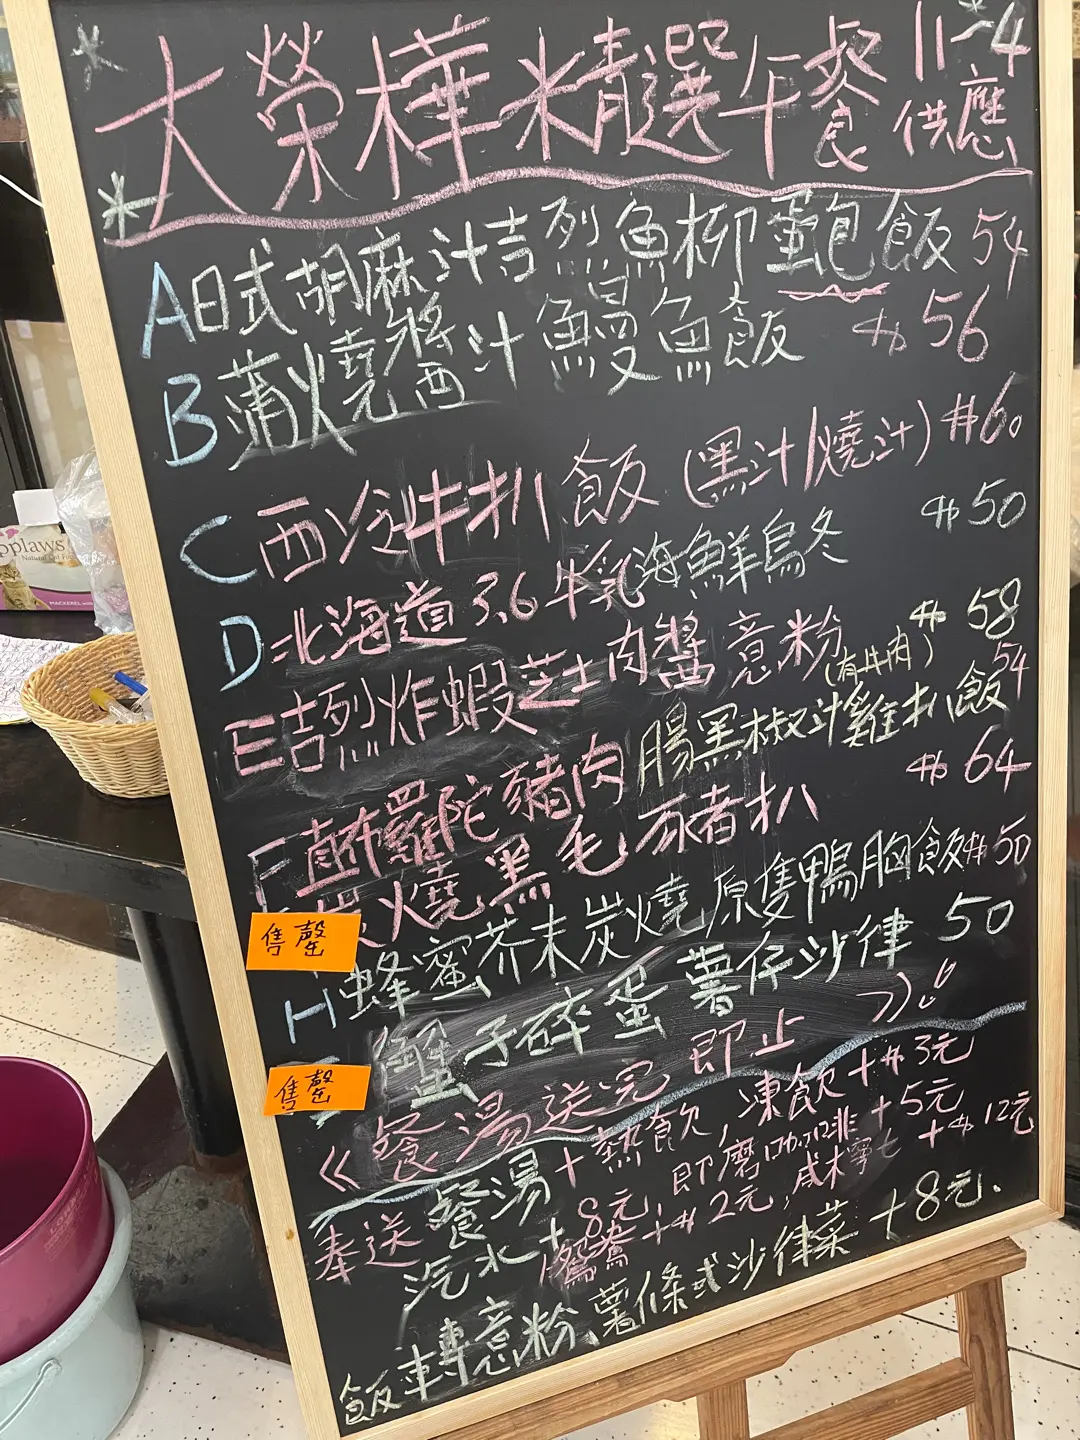 大榮樺精選午餐 11-4
供應
A 日式胡麻汁吉烈魚柳蛋包飯 54
B 蒲燒醬汁鰻魚飯 $56
C 西冷牛扒飯(黑汁/燒汁) $60
D 北海道3.6牛乳海鮮烏冬 $50
E 吉烈炸蝦芝士肉醬意粉 $58
(有牛肉)
F 莳蘿陀豬肉腸黑椒汁雞扒飯 54
炭燒黑毛豬扒 $64
售罄
H 蜂蜜芥末炭燒原隻鴨胸飯 $50
蟹子碎蛋薯仔沙律 50
售罄
《餐湯送完即止》
奉送餐湯+熱飲,凍飲+$3元
汽水+8元,即磨咖啡+5元
鴛鴦+$2元,咸檸七+$12元
飯轉意粉、薯條或沙律菜+8元.
pplaws
Natural Cat Foo
MACKEREL WITH